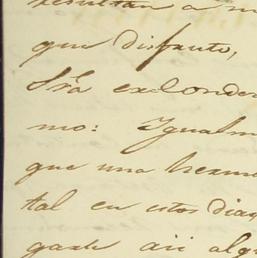 resultan a m
que disfruto,
Sra exlonder
mo: Igualm
que una herm
tal en estos dias
gaste asi alg